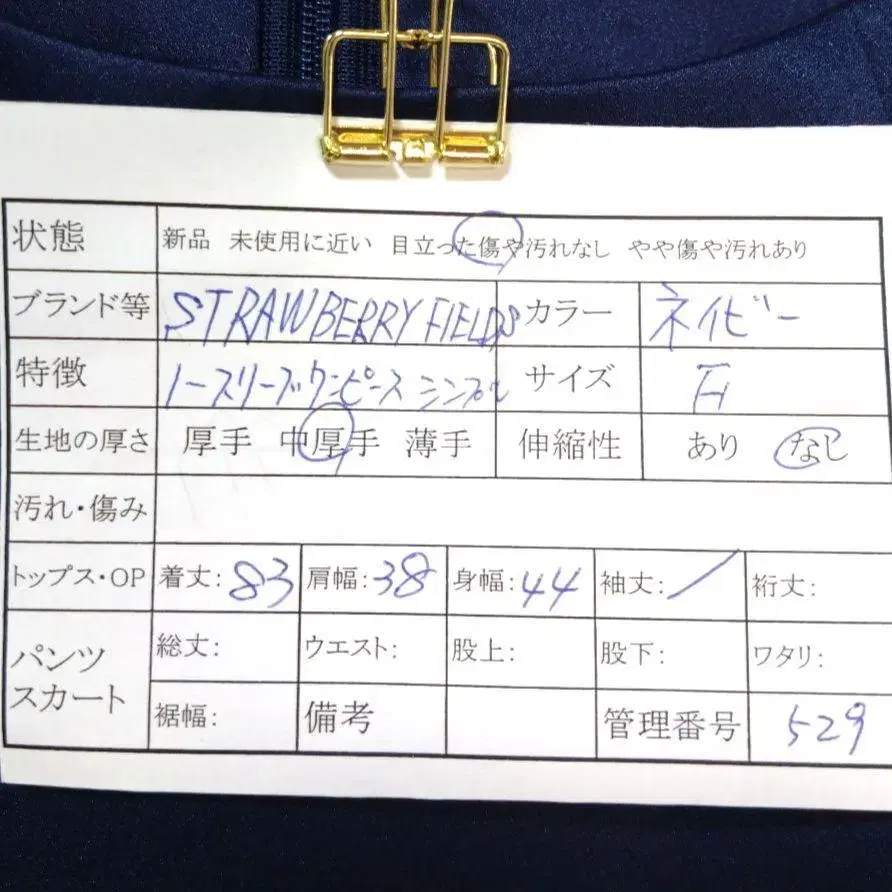 状態 新品 未使用に近い 目立った傷や汚れなし やや傷や汚れあり
ブランド等 STRAWBERRY FIELDS カラー ネイビー
特徴 ノースリーブワンピース シンプル サイズ F
生地の厚さ 厚手 中厚手 薄手 伸縮性 あり なし
汚れ・傷み
トップス・OP 着丈: 83 肩幅: 38 身幅: 44 袖丈: / 裄丈:
パンツ スカート 総丈: ウエスト: 股上: 股下: ワタリ:
裾幅: 備考 管理番号 529